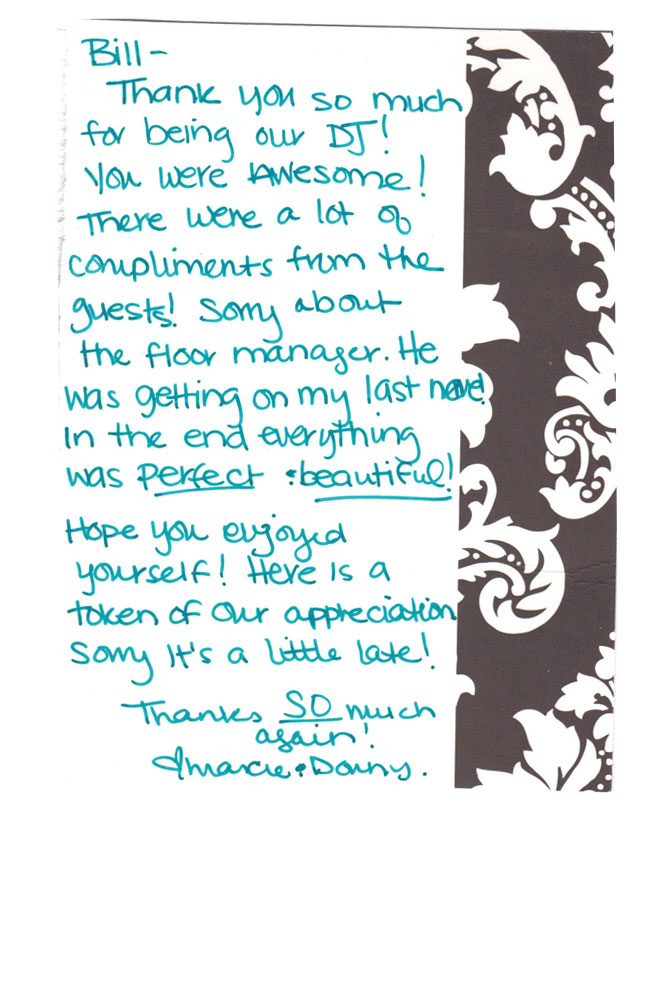 Bill-
Thank you so much
for being our DJ!
You were Awesome!
There were a lot of
compliments from the
guests! Sorry about
the floor manager. He
was getting on my last nerve!
In the end everything
was perfect & beautiful!
Hope you enjoyed
yourself! Here is a
token of our appreciation
Sorry It's a little late!
Thanks SO much
again!
Marcie & Donny.